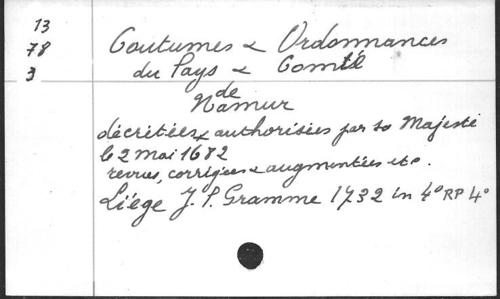 13
78
3
Coutumes & Ordonnances
du Pays & Comté
de
Namur
décrétées & authorisées par sa Majesté
le 2 mai 1682
revues, corrigées & augmentées etc.
Liége J. P. Gramme 1732 in 4° RP 4°